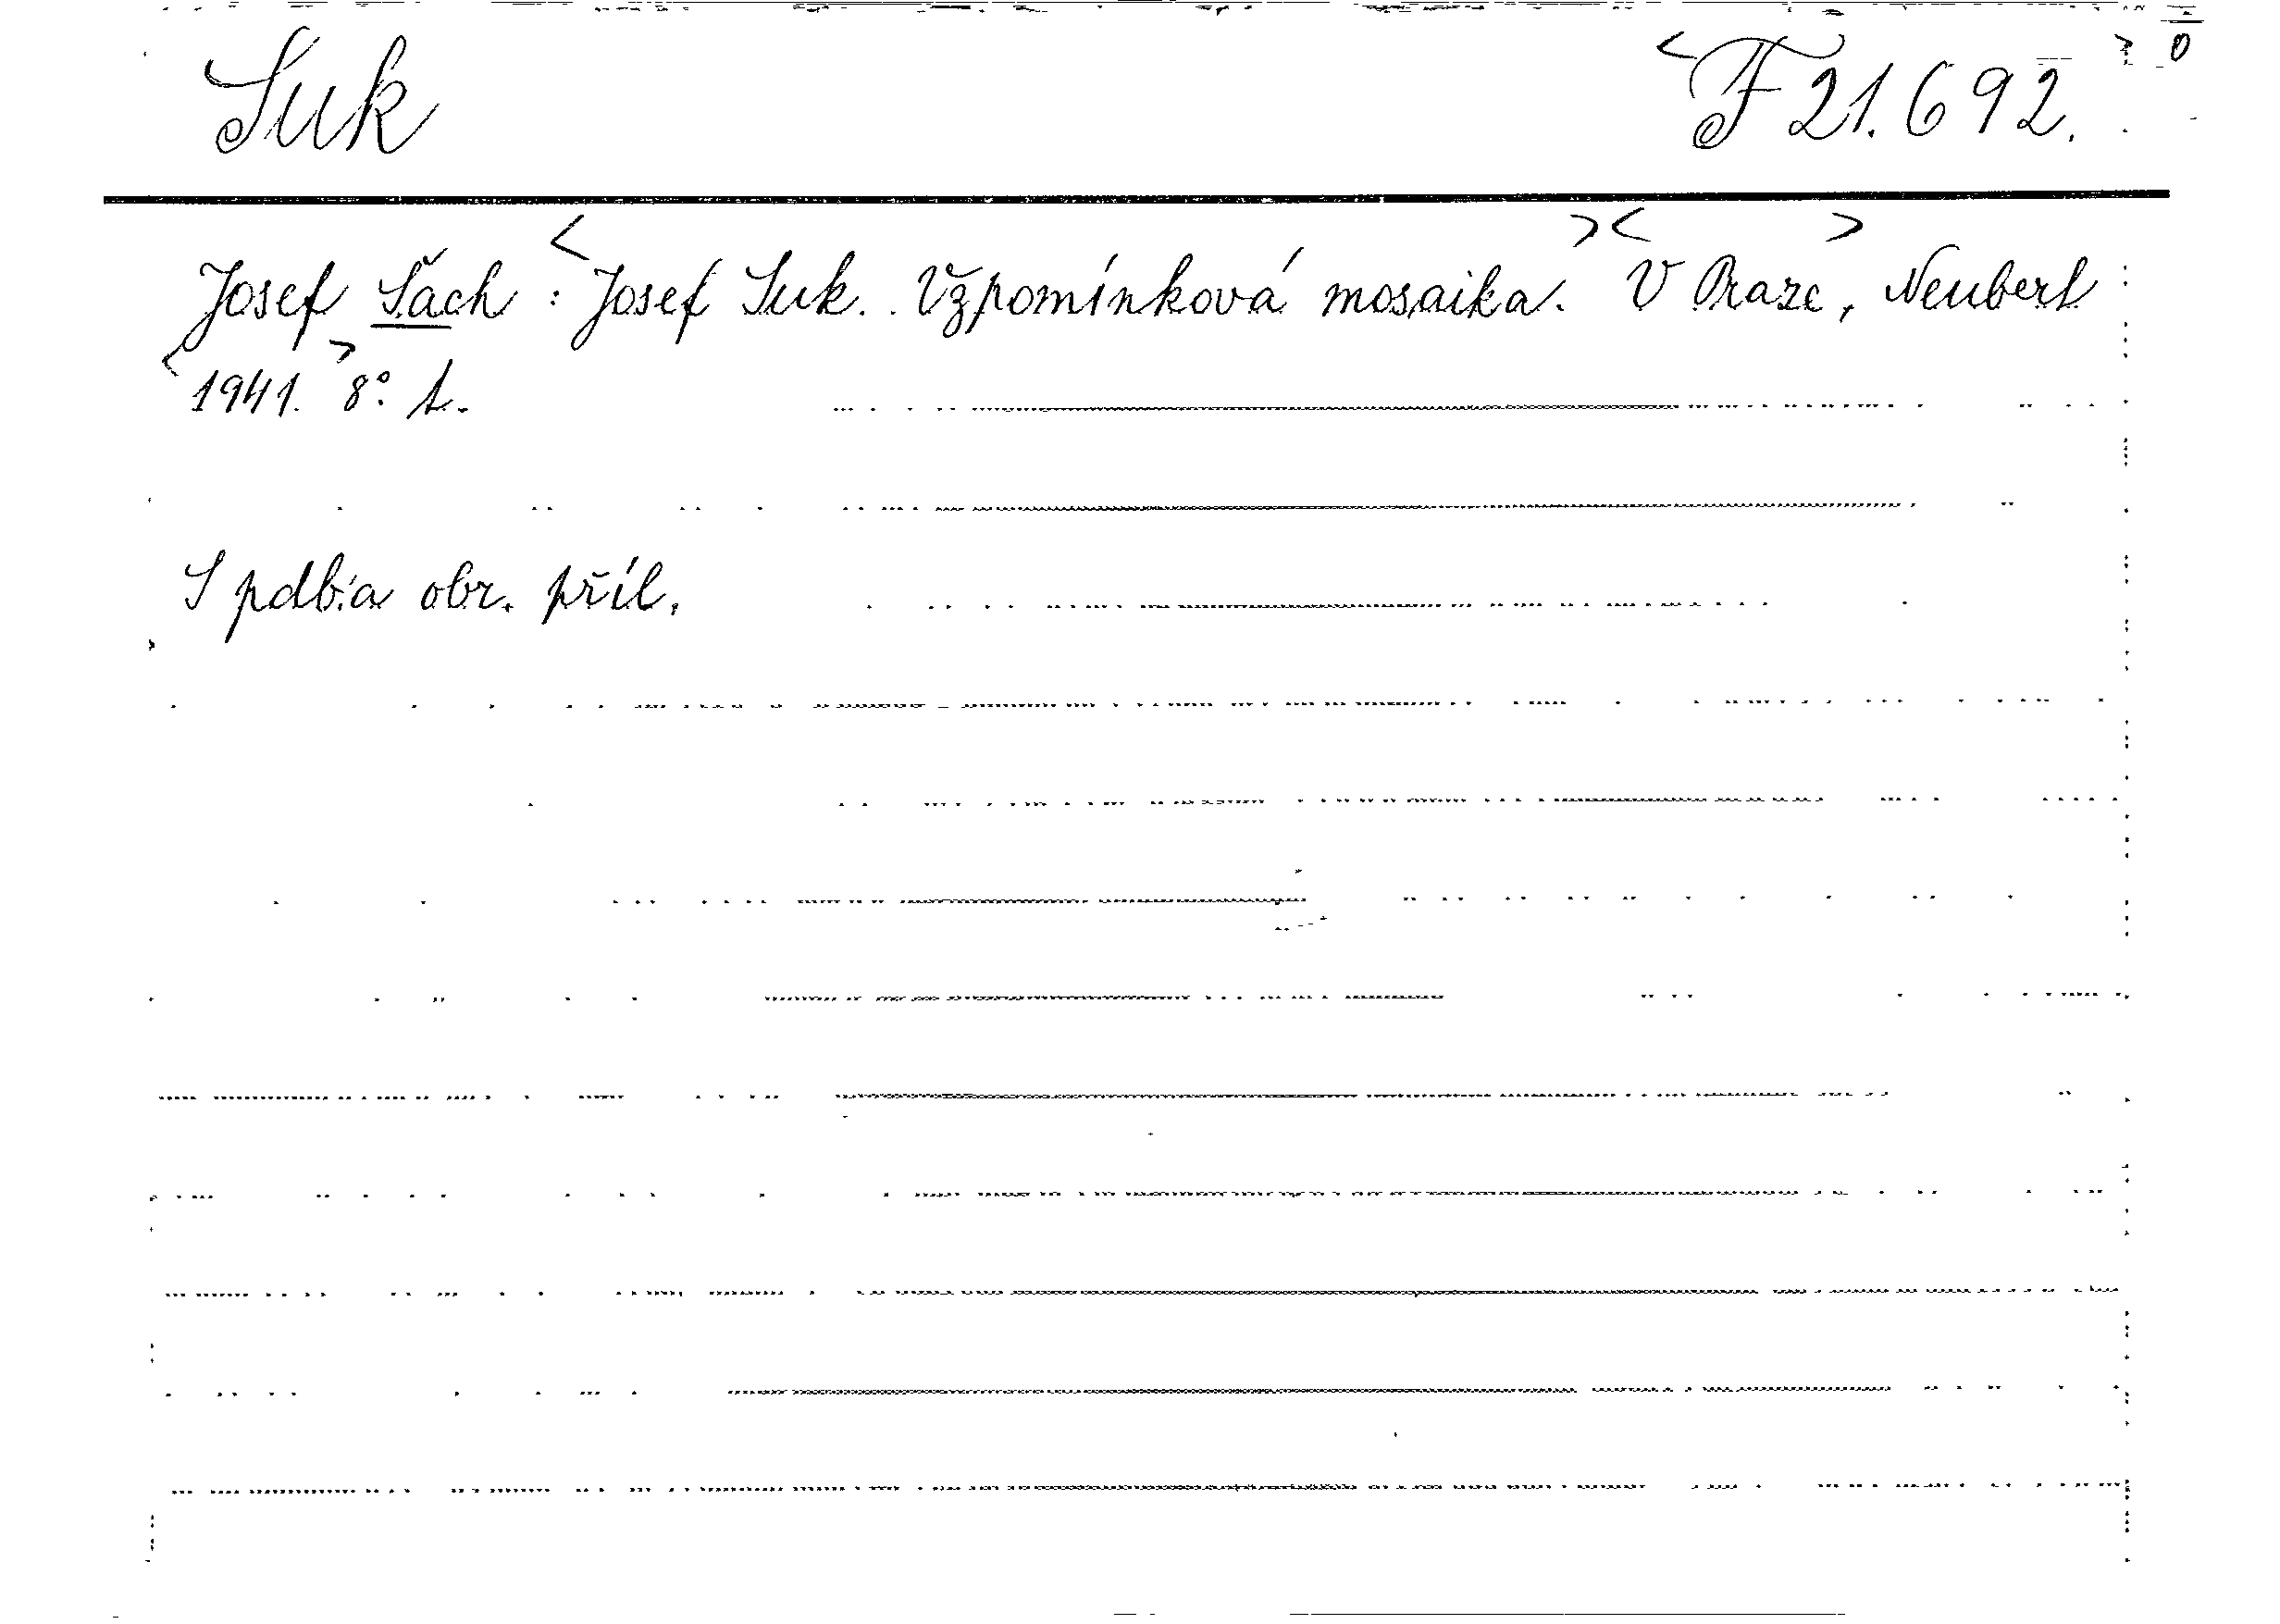 Suk <F 21.692.> 0
Josef Šach: <Josef Suk. Vzpomínková mosaika.> <V Praze>, Neubert
<1941.> 8°. 1.
S pdb. a obr. příl.